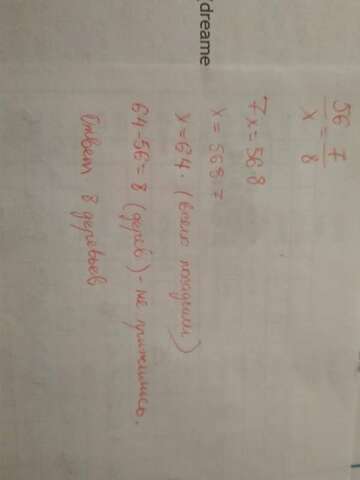 dreame
56/x = 7/8
7x = 56·8
x = 568:7
x = 64. (всего посадили)
64-56=8 (дерев) - не прижились.
Ответ 8 деревьев